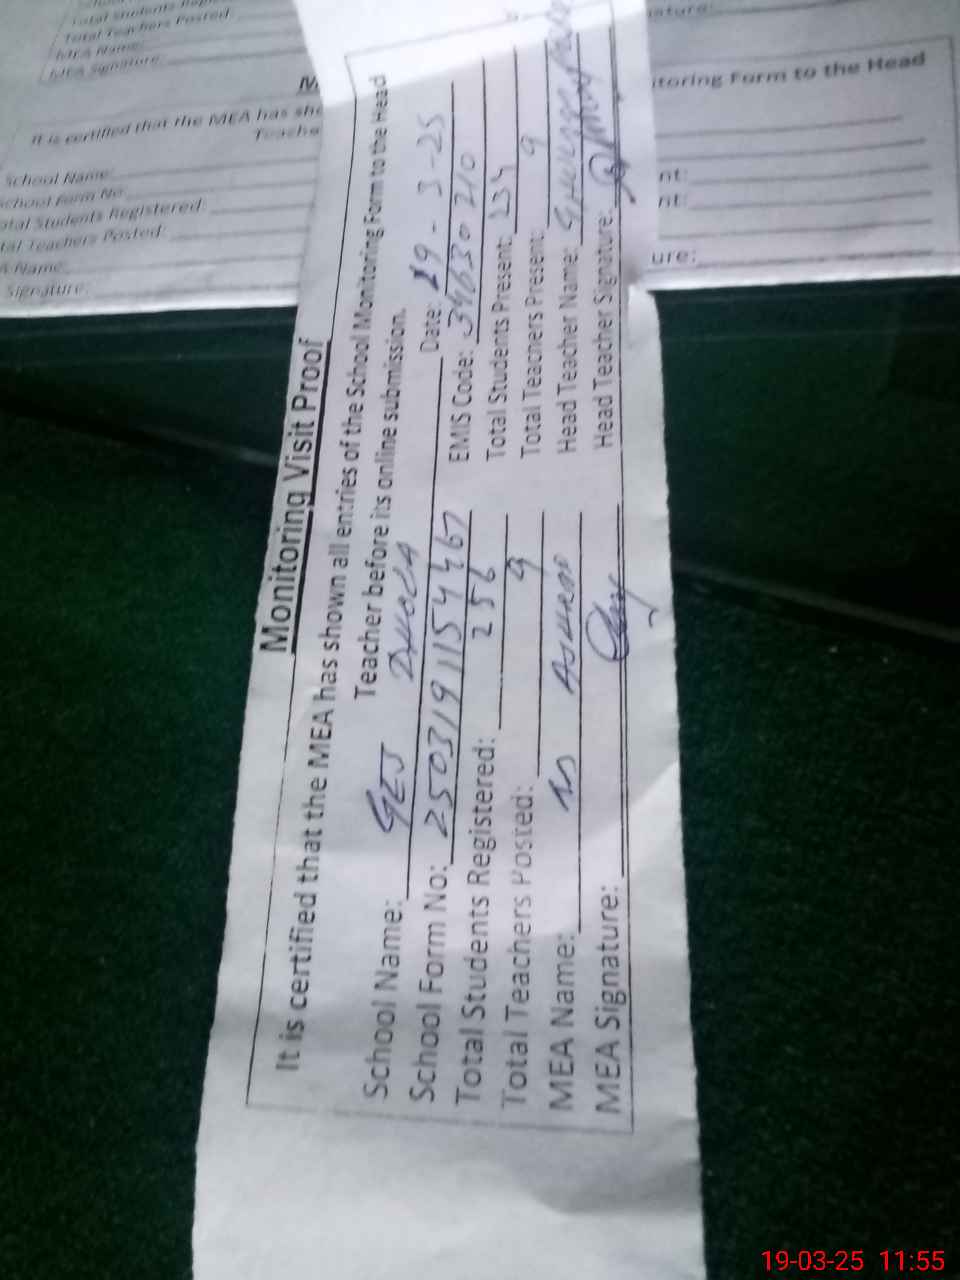 Total Teachers Posted:
MEA Name:
MEA Signature:
It is certified that the MEA has sho
Teache
School Name:
School Form No
Total Students Registered:
tal Teachers Posted:
Name:
Signature:
ature:
itoring Form to the Head
nt:
nt:
ure:
Monitoring Visit Proof
It is certified that the MEA has shown all entries of the School Monitoring Form to the Head
Teacher before its online submission.
School Name: GES Date: 19-3-25
School Form No: 2503191154467 EMIS Code: 34630210
Total Students Registered: 256 Total Students Present: 234
Total Teachers Posted: 9 Total Teachers Present: 9
MEA Name: Head Teacher Name:
MEA Signature: Head Teacher Signature:
19-03-25 11:55